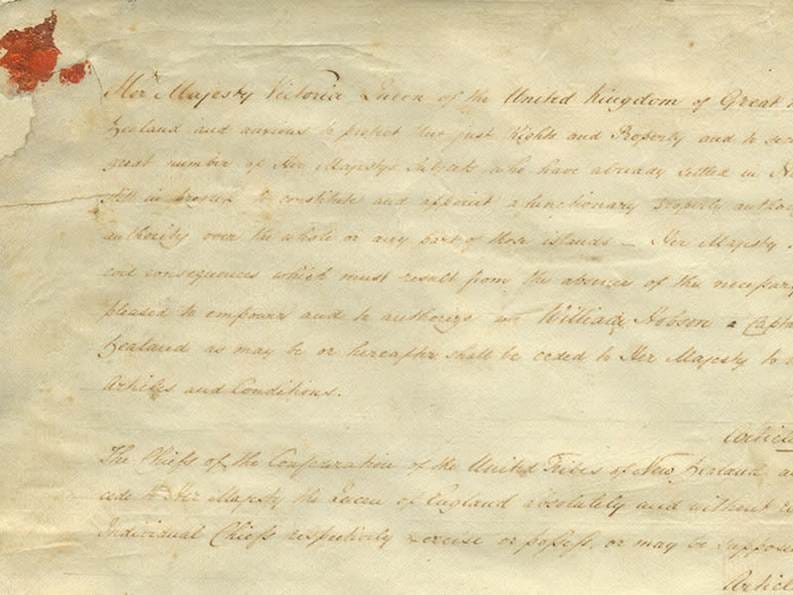 Her Majesty Victoria Queen of the United Kingdom of Great
Zealand and anxious to protect their just Rights and Property and to sec
great number of Her Majesty's Subjects who have already settled in N
still in progress to constitute and appoint a functionary properly autho
authority over the whole or any part of those islands – Her Majesty
evil consequences which must result from the absence of the necessary
pleased to empower and to authorize me William Hobson a Capta
Zealand as may be or hereafter shall be ceded to Her Majesty to
Articles and Conditions.
Article
The Chiefs of the Confederation of the United Tribes of New Zealand a
cede to Her Majesty the Queen of England absolutely and without
Individual Chiefs respectively exercise or possess, or may be suppose
Articl